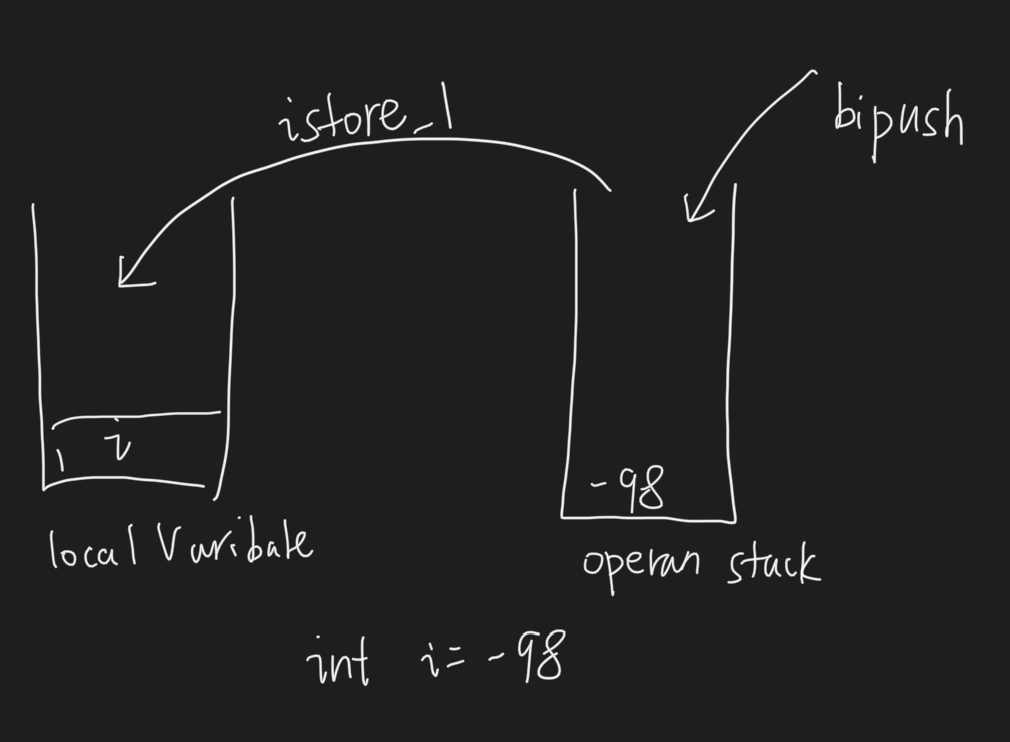 istore_1
bipush
1 i
-98
local Varibate
operan stack
int i= -98